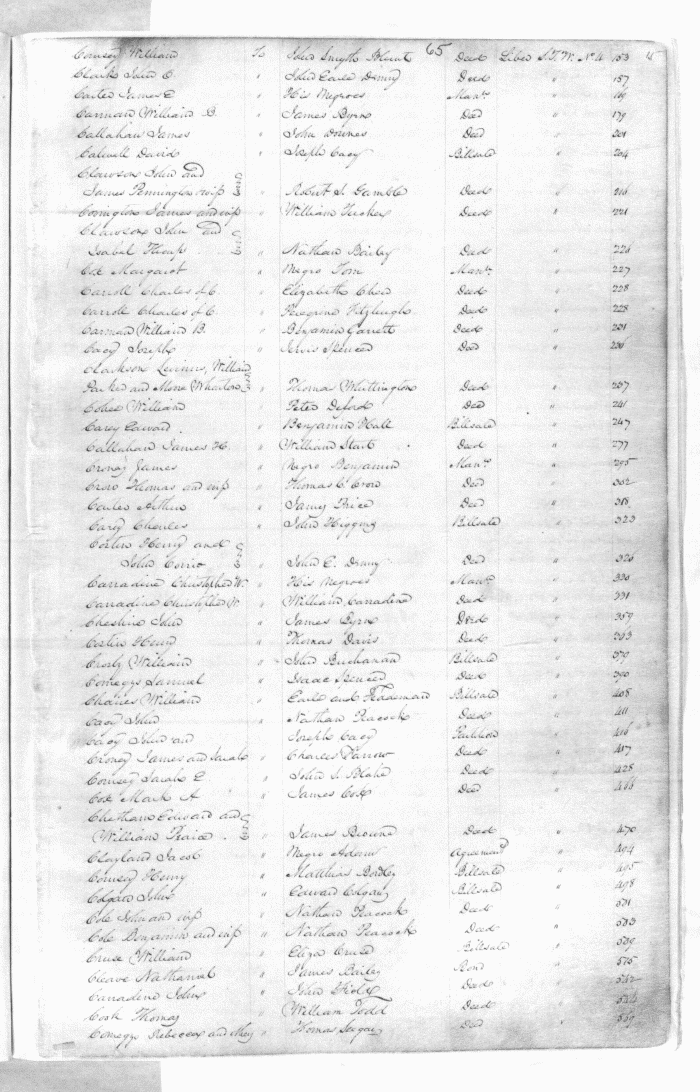 65
Causey William To John Smyth Blunt Deed Liber S.T.W. No 4 153
Clark John C. " John Earle Denny Deed " 157
Carter James E " His Negroes Manu. " 169
Carman William B. " James Byrn Deed " 179
Callahan James " John Downes Deed " 201
Calwell David " Joseph Cacy Billsale " 204
Clawson John and
James Pennington & wife " Robert S. Gamble Deed " 216
Covington James and wife " William Tucker Deed " 221
Clawson John and
Isabel " Nathan Bailey Deed " 226
Cox Margaret " Negro Tom Manu. " 227
Carroll Charles of C. " Elizabeth Chew Deed " 228
Carroll Charles of C. " Peregrine Fitzhugh Deed " 228
Carman William B. " Benjamin Garrett Deed " 231
Cacy Joseph " Spencer Deed " 236
Clackson Levinus, William
Parker and " Thomas Whittington Deed " 237
William " Peter Deford Deed " 241
Carey Edward " Benjamin Hall Billsale " 247
Callahan James H. " William Start Deed " 277
Croney James " Negro Benjamin Manu. " 295
Crow Thomas and wife " Thomas C. Crow Deed " 302
Arthur " James Price Deed " 318
Carey Charles " John Higgins Billsale " 323
Costin Henry and
John " John E. Denny Deed " 326
Carradine Christopher W. " His Negroes Manu. " 330
Carradine Christopher W. " William Carradine Deed " 331
Cheshire John " James Byrn Deed " 359
Costin Henry " Thomas Davis Deed " 363
Crosby William " John Buchanan Billsale " 379
Comegys Samuel " Isaac Spencer Deed " 390
Chaires William " Earle and Tiddeman Billsale " 408
Cacy John " Nathan Peacock Deed " 411
Cacy John and " Joseph Cacy Partition " 416
Croney James and Sarah " Charles Deed " 417
Comsey Sarah E " John S. Blake Deed " 428
Cox Mark A. " James Cox Deed " 466
Chetham Edward and
William " James Browne Deed " 470
Clayland Jacob " Negro Adam Agreement " 494
Henry " Matthias Bordley Billsale " 495
Colgan John " Edward Colgan Billsale " 498
Cole John and wife " Nathan Peacock Deed " 531
Cole Benjamin and wife " Nathan Peacock Deed " 533
Cruse William " Eliza Cruse Billsale " 539
Cleave Nathaniel " James Bailey Bond " 575
Carradine John " John Deed "
Cook Thomas " William Todd Deed "
Comegys Rebecca and " Thomas Deed "